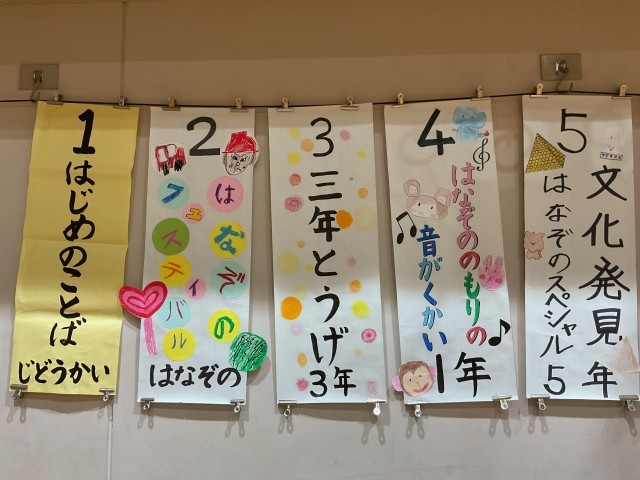 1
はじめのことば
じどうかい
2
はなぞの
フェスティバル
はなぞの
3
三年とうげ
3年
4
はなぞののもりの
音がくかい
1年
5
文化発見
はなぞのスペシャル
5年